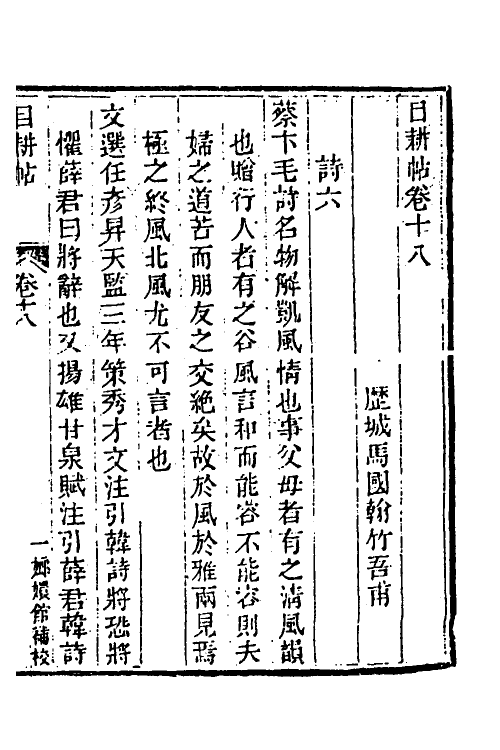 目耕帖卷十八
歷城馬國翰竹吾甫
詩六
蔡卞毛詩名物解凱風情也事父母者有之淸風韻
也贈行人者有之谷風言和而能容不能容則夫
婦之道苦而朋友之交絶矣故於風於雅兩見焉
極之終風北風尤不可言者也
文選任彥昇天監三年策秀才文注引韓詩將恐將
懼薛君曰將辭也又揚雄甘泉賦注引薛君韓詩
目耕帖
卷十八
一
嫏嬛館補校